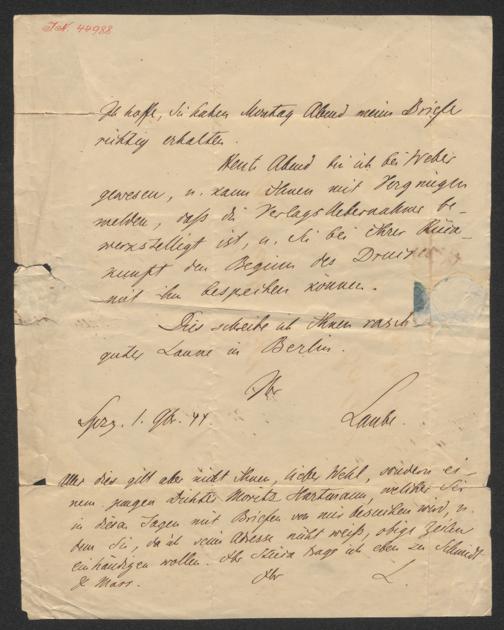 J.N. 44988
Ich hoffe, Sie haben Montag Abend meine Briefe
richtig erhalten.
Heute Abend bin ich bei Weber
gewesen, u. kann Ihnen mit Vergnügen
melden, daß die Verlagsübernahme be-
werkstelligt ist, u. Sie bei Ihrer Rück-
kunft den Beginn des Druckes
mit ihm besprechen können.
Dies schreibe ich Ihnen rasch
guter Laune in Berlin.
Ihr
Lpzg. 1. 9br. 44 Laube.
Alles dies gilt aber nicht Ihnen, lieber Wehl, sondern ei-
nem jungen Dichter Moritz Hartmann, welcher Sie
in diesen Tagen mit Briefen von mir besuchen wird, u.
dem Sie, da ich seine Adresse nicht weiß, obige Zeilen
einhändigen wollen. Ihr trage ich eben zu Schmidt
& Marr.
Ihr L.